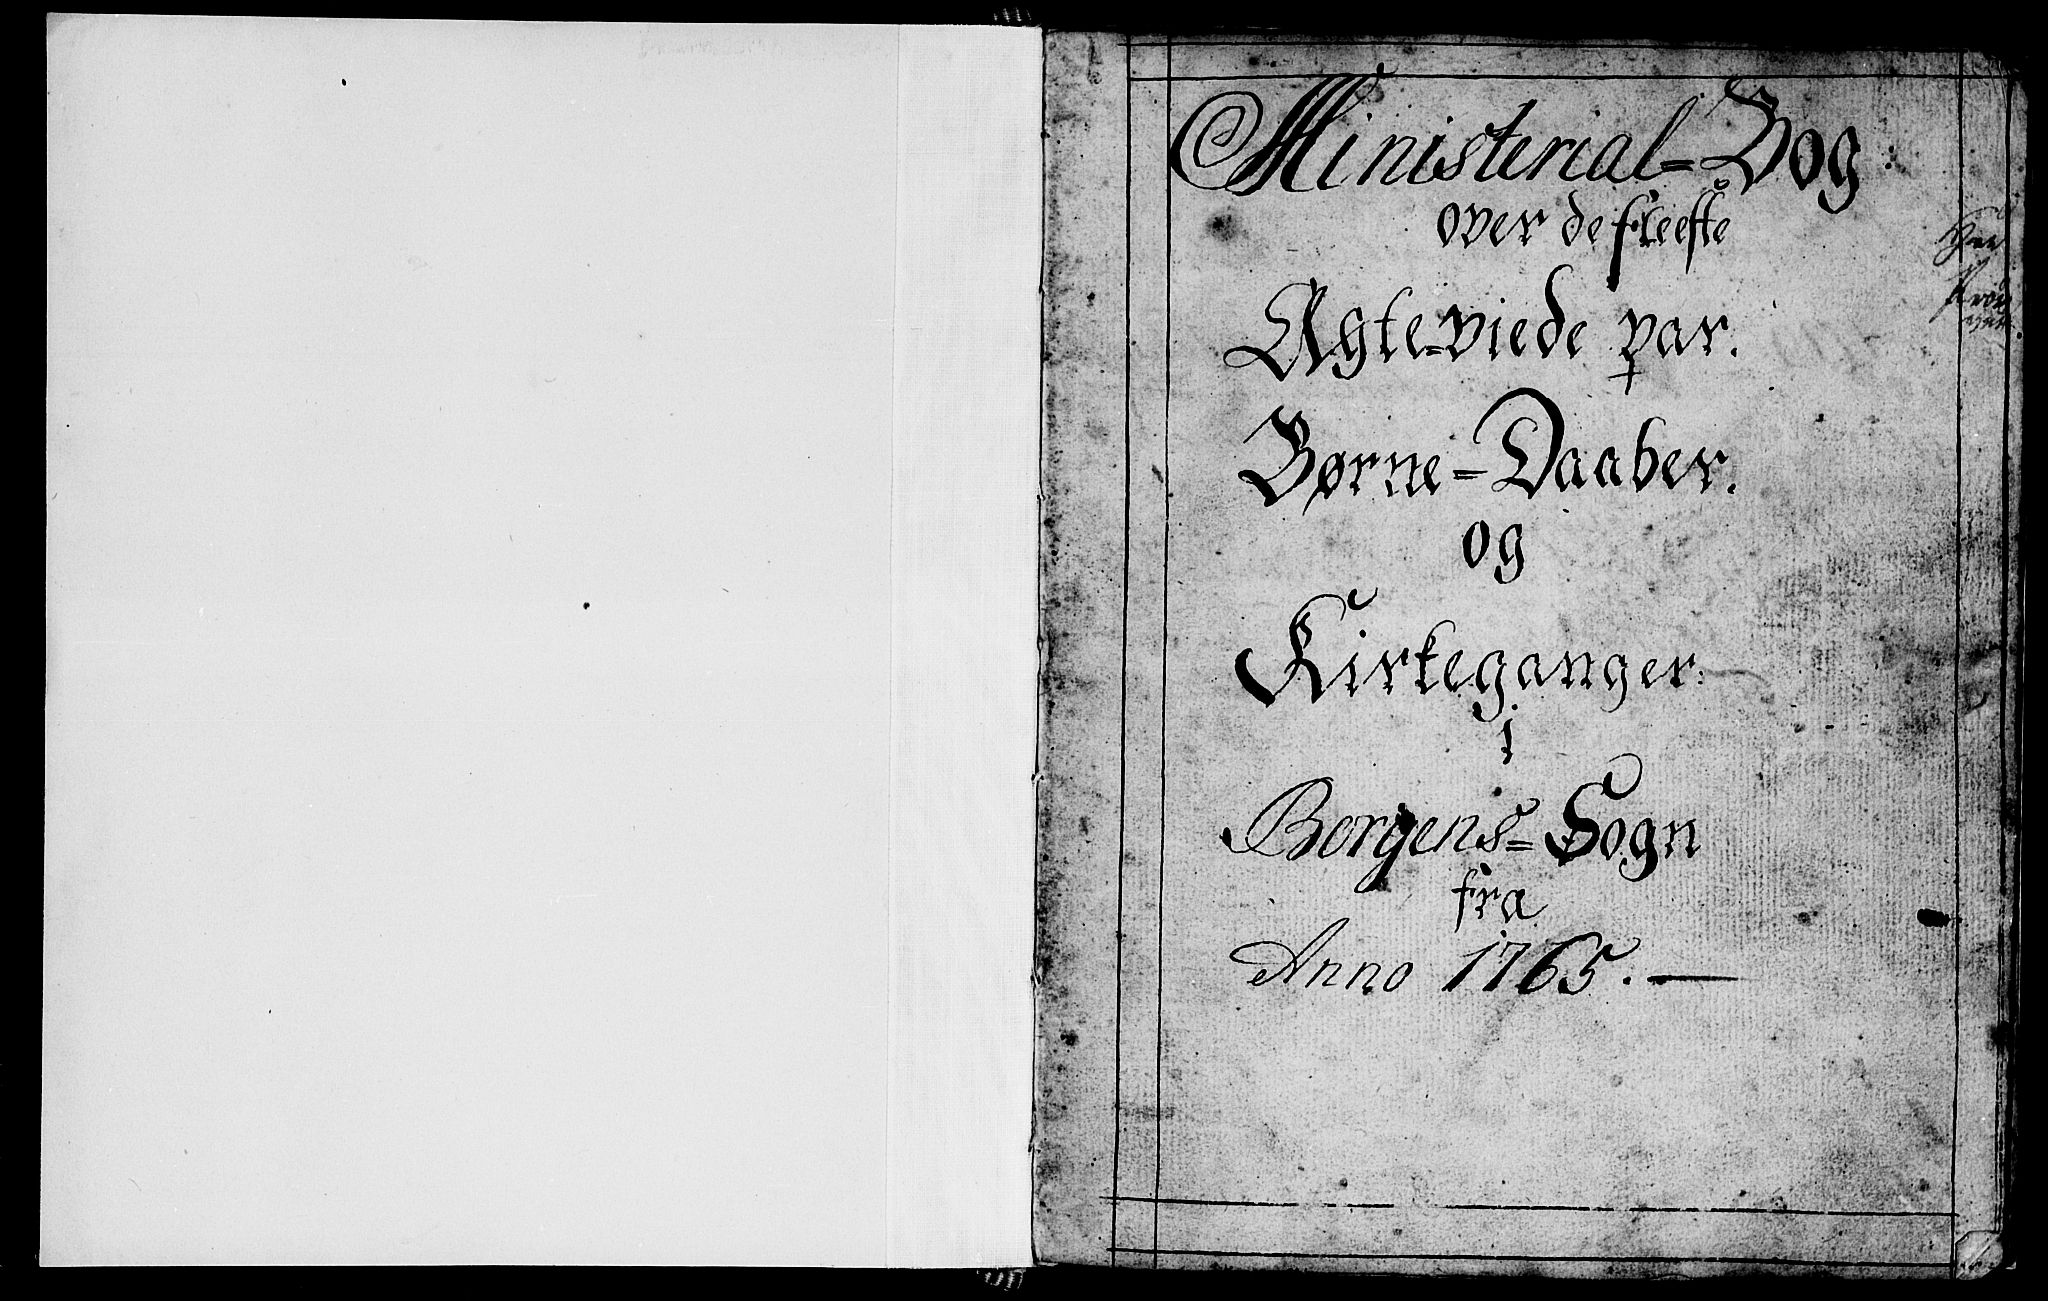 Ministerial=Bog
over de fleeste
Agte=viede par.
Børne=Daaber.
og
Kirkeganger.
i
Borgens=Sogn
fra
Anno 1765.